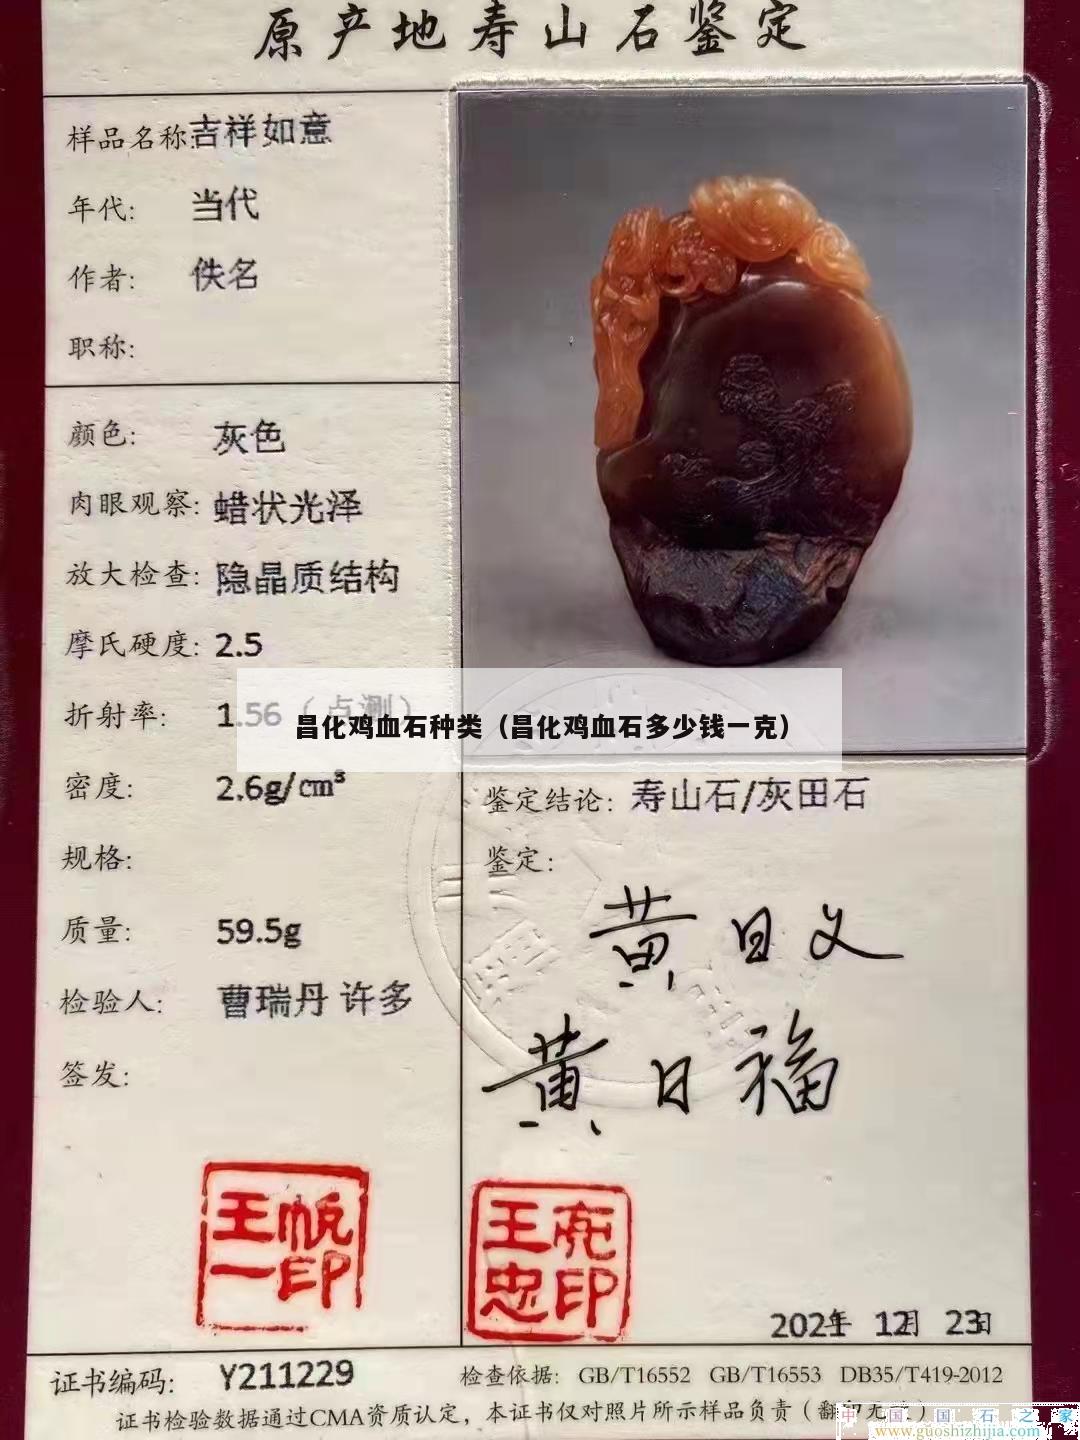 原产地寿山石鉴定
样品名称:吉祥如意
年代: 当代
作者: 佚名
职称:
颜色: 灰色
肉眼观察: 蜡状光泽
放大检查: 隐晶质结构
摩氏硬度: 2.5
折射率: 1.56（点测）
昌化鸡血石种类（昌化鸡血石多少钱一克）
密度: 2.6g/cm³
规格:
质量: 59.5g
检验人: 曹瑞丹 许多
签发:
王帆
一印
鉴定结论: 寿山石/灰田石
鉴定:
黄日文
黄日福
王亮
忠印
2021年 12月 23日
证书编码: Y211229
检查依据: GB/T16552 GB/T16553 DB35/T419-2012
证书检验数据通过CMA资质认定，本证书仅对照片所示样品负责（翻印无效）
中国国石之家
www.guoshizhijia.com